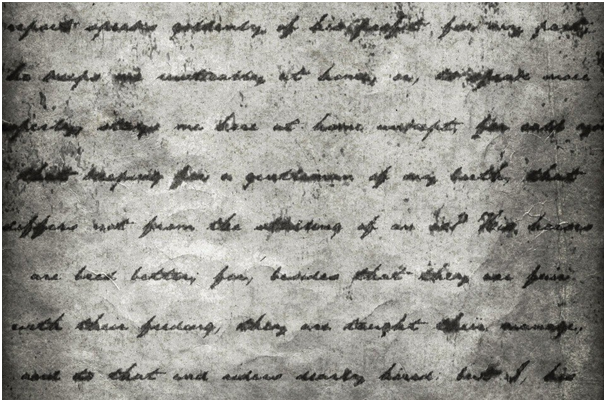 report speaks goldenly of his profit: for my part,
he keeps me rustically at home, or, to speak more
operly, stays me here at home unkept; for call you
that keeping for a gentleman of my birth, that
differs not from the stalling of an ox? His horses
are bred better; for, besides that they are fair
with their feeding, they are taught their manage,
and to that end riders dearly hired: but I, his